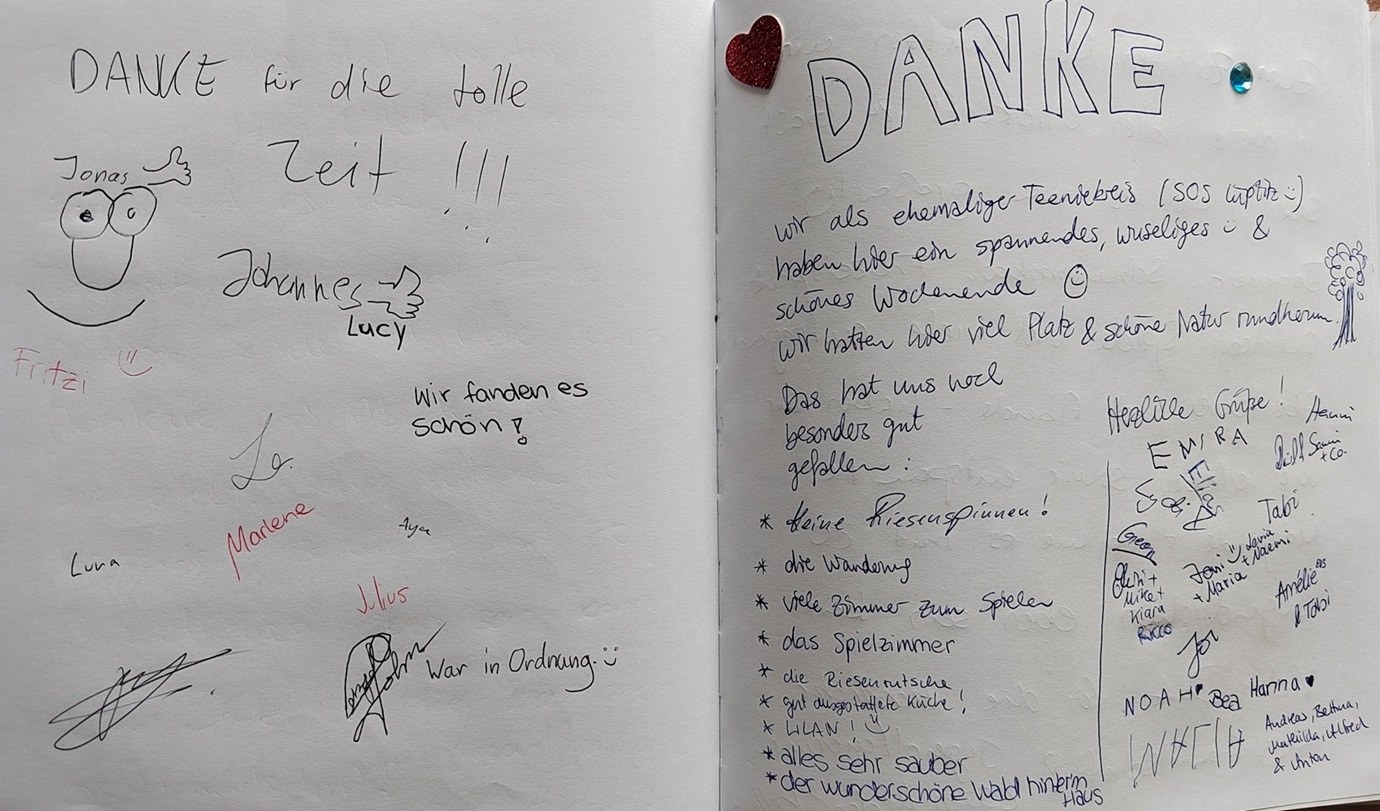 DANKE für die tolle
Zeit !!!
Jonas
Johannes
Lucy
Fritzi
Wir fanden es
schön!
Marlene
Aya
Luna
Julius
John War in Ordnung. :)
DANKE
wir als ehemaliger Teeniekreis (SOS :)
haben hier ein spannendes, wuseliges :) &
schönes Wochenende ☺
wir hatten hier viel Platz & schöne Natur rundherum
Das hat uns noch
besonders gut
gefallen:
* keine Riesenspinnen!
* die Wanderung
* viele Zimmer zum Spielen
* das Spielzimmer
* die Riesenrutsche
* gut ausgestattete Küche!
* WLAN! :)
* alles sehr sauber
* der wunderschöne Wald hinterm
Haus
Herzliche Grüße!
Hanni
EMIRA
Sami
+ Co.
Elias
Tabi
Georg
Joni :)
+ Maria + Naemi
+
Mike +
Kiara
Ricco
Amélie
& Tobi
NOAH Bea Hanna ♥
Andreas, Bettina,
Mathilda, Alfred
& Anton